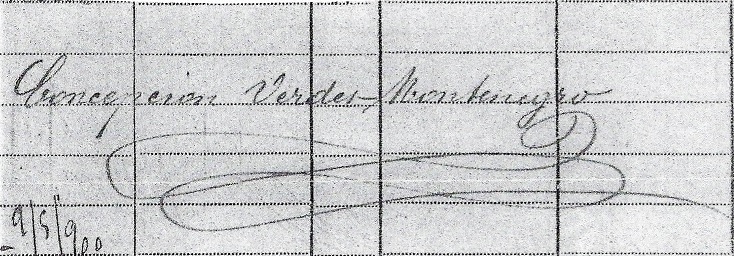 Concepcion Verdes Montenegro
9/5/900